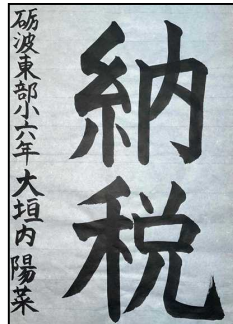 納税
砺波東部小六年 大垣内陽菜